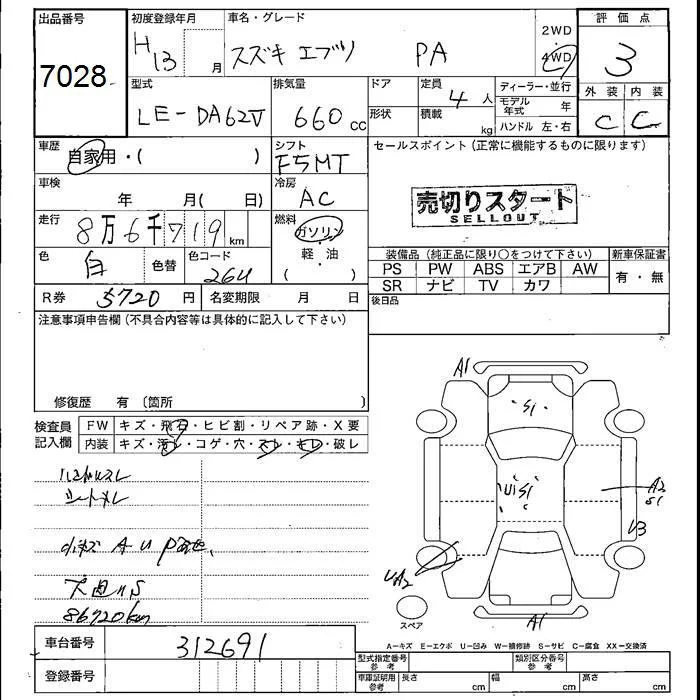 出品番号
7028
初度登録年月
H 13 月
車名・グレード
スズキ エブリ PA
2WD
4WD
評価点
3
型式
LE-DA62V
排気量
660 cc
ドア
形状
定員
4 人
積載
kg
ディーラー・並行
モデル年式 年
ハンドル 左・右
外装
C
内装
C
車歴
自家用・( )
シフト
F5MT
セールスポイント (正常に機能するものに限ります)
車検
年 月( 日)
冷房
AC
売切りスタート
SELLOUT
走行
8万6千719 km
燃料
ガソリン
軽・油
( )
色
白
色替
色コード
26U
装備品 (純正品に限り○をつけて下さい)
新車保証書
PS PW ABS エアB AW
SR ナビ TV カワ
有・無
R券 5720 円
名変期限 月 日
後日品
注意事項申告欄 (不具合内容等は具体的に記入して下さい)
修復歴 有 〔箇所 〕
検査員記入欄
FW キズ・飛石・ヒビ割・リペア跡・X要
内装 キズ・汚レ・コゲ・穴・スレ・キレ・破レ
86720km
A1
S1
U1 S1
A2
S1
U3
UA2
A1
スペア
A-キズ E-エクボ U-凹み W-補修跡 S-サビ C-腐食 XX-交換済
車台番号
312691
登録番号
型式指定番号参考
類別区分番号参考
車庫証明用参考
長さ cm 幅 cm 高さ cm